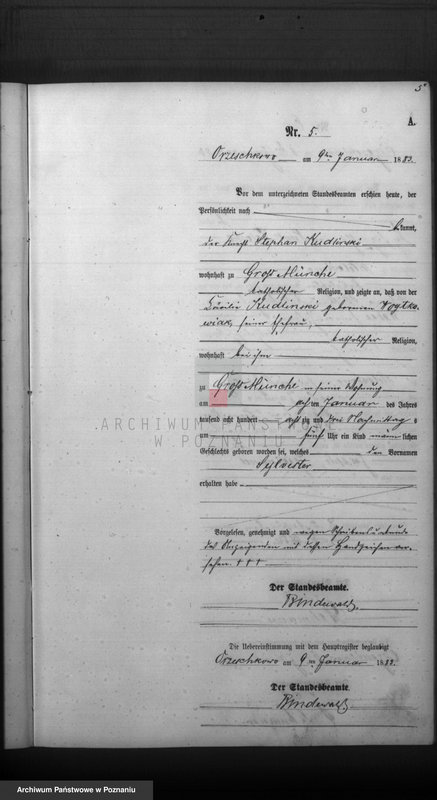 5
A.
Nr. 5.
Orzeschkowo am 9ten Januar 1883.
Vor dem unterzeichneten Standesbeamten erschien heute, der
Persönlichkeit nach
kannt,
der Knecht Stephan Kudlinski
wohnhaft zu Groß Münche
katholischer Religion, und zeigte an, daß von der
Kudlinski geborenen
seiner Ehefrau,
katholischer Religion,
wohnhaft bei ihm
zu Groß Münche in seiner Wohnung
am ten Januar des Jahres
tausend acht hundert acht zig und drei Nachmittag s
um fünf Uhr ein Kind männ lichen
Geschlechts geboren worden sei, welches den Vornamen
Sylvester
erhalten habe
ARCHIWUM PAŃSTWOWE
W POZNANIU
Vorgelesen, genehmigt und wegen Schreibensunkunde
des Anzeigenden mit dessen Handzeichen ver-
sehen. † † †
Der Standesbeamte.
Bindewald.
Die Uebereinstimmung mit dem Hauptregister beglaubigt
Orzeschkowo am 9 ten Januar 1883.
Der Standesbeamte.
Bindewald.
Archiwum Państwowe w Poznaniu